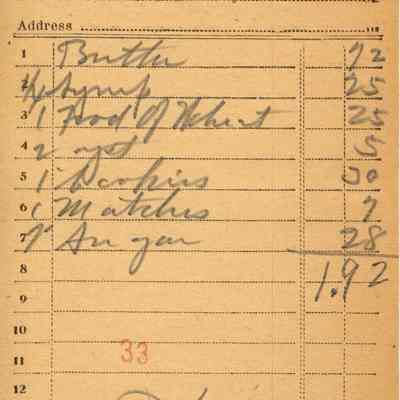 Address
1 Butter 72
2 ½ Syrup 25
3 1 Food of Wheat 25
4 2 5
5 1 Cookies 30
6 1 Matches 7
7 1 28
8 1.92
9
10
33
11
12